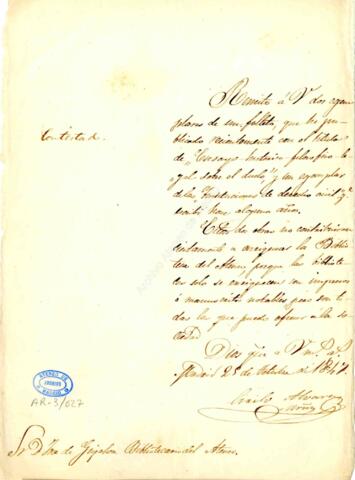 Contestada.
Remito á V. dos ejem
plares de un folleto, que he pu
blicado recientemente con el título
de "Ensayo histórico-filosófico le
gal sobre el duelo," y un ejemplar
de las Instituciones de derecho civil qe.
escribí hace algunos años.
Estas dos obras no contribuirán
ciertamente á enriquecer la Biblio
teca del Ateneo, porque las bibliote
cas solo se enriquecen con impresos
ó manuscritos notables pero son to
das las que puede ofrecer a la so
ciedad
Dios gue. á V. m. a.
Madrid 2 de Octubre de 1847.
Cirilo Alvarez
ATENEO DE MADRID
AR-3/027
Sr. D. de Bibliotecario del Ateneo.